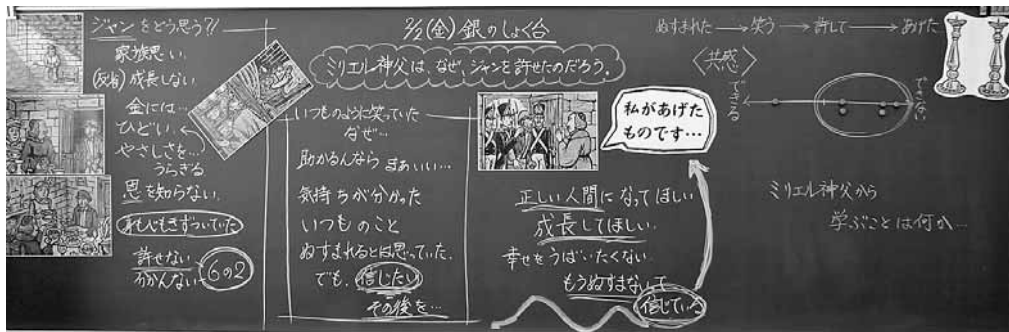 ジャンをどう思う?!
家族思い
(反省)成長しない
金には…
ひどい
やさしさを…
うらぎる
恩を知らない
許せない
わかんない
6の2
2/2(金) 銀のしょく台
ミリエル神父は、なぜ、ジャンを許せたのだろう。
いつものように笑っていた
なぜ…
助かるんなら まぁいい…
気持ちが分かった
いつものこと
ぬすまれるとは思っていた
でも、信じたい
その後を…
私があげた
ものです…
正しい人間になってほしい
成長してほしい
幸せをうばいたくない
もうぬすまないで
信じている
ぬすまれた→笑う→許して→あげた
〈共感〉
できる
できない
ミリエル神父から
学ぶことは何か…